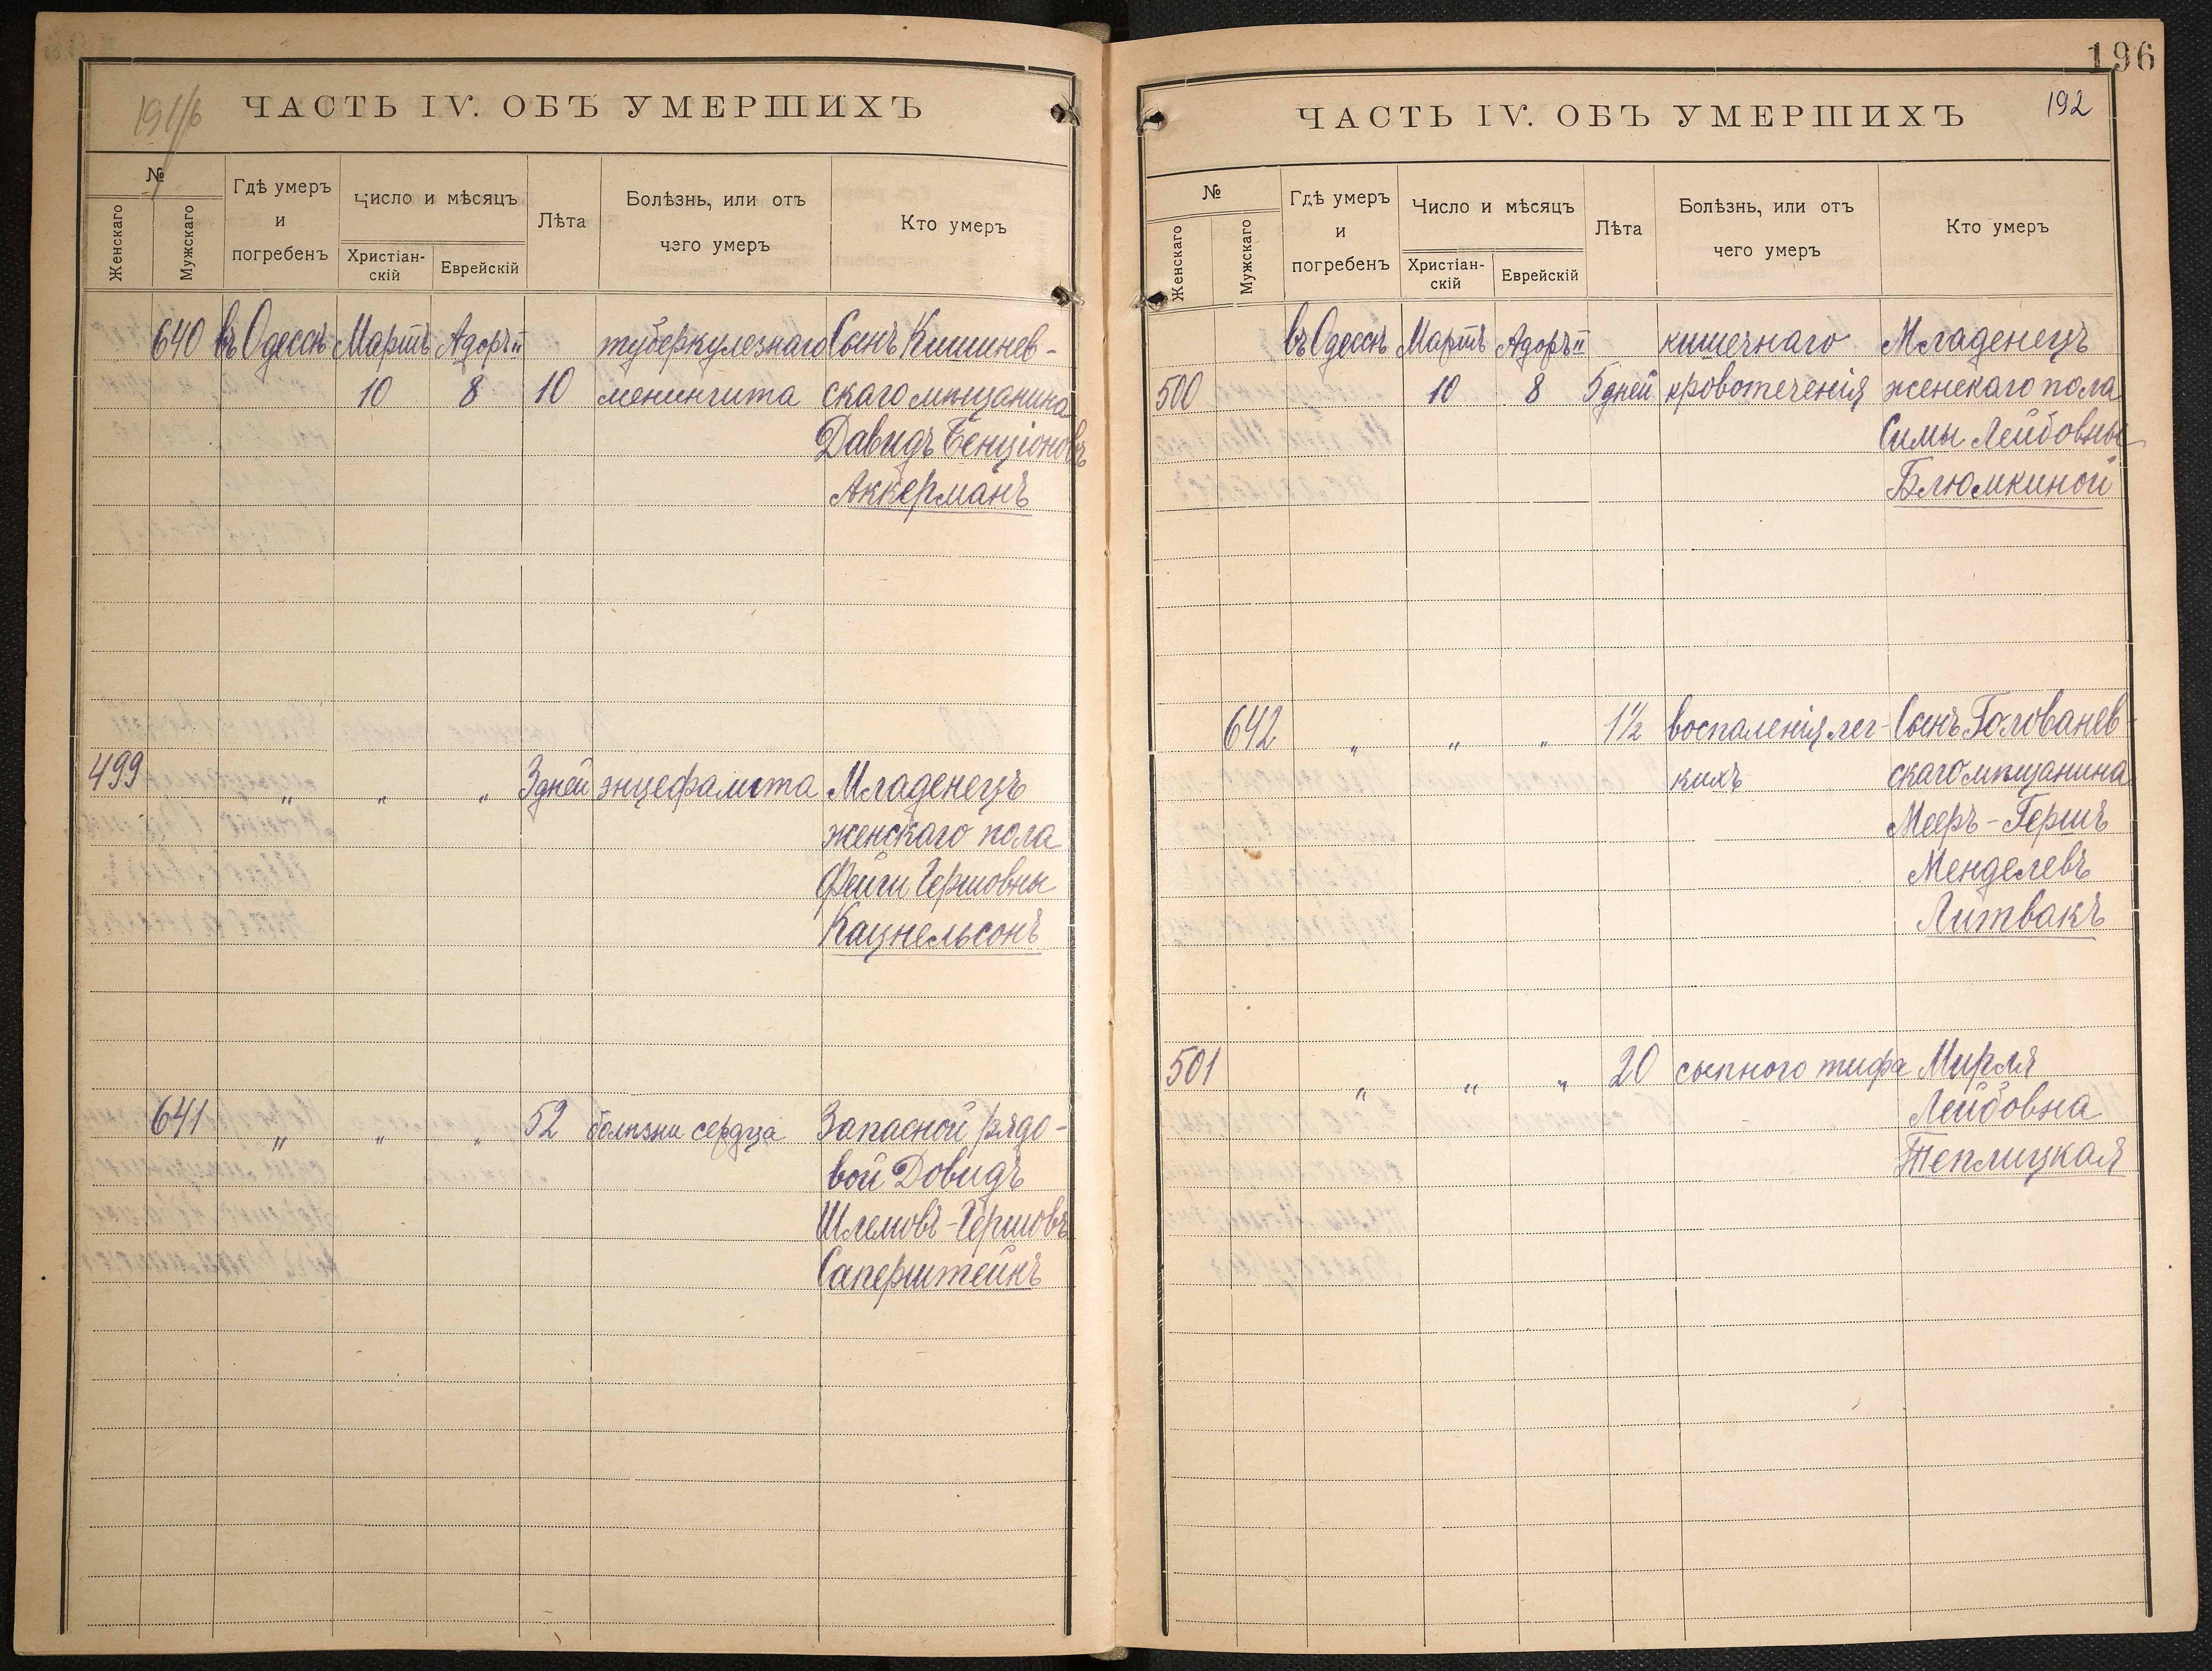 191/6
ЧАСТЬ IV. ОБЪ УМЕРШИХЪ
№
Женскаго
Мужскаго
Гдѣ умеръ
и
погребенъ
Число и мѣсяцъ
Христіан-
скій
Еврейскій
Лѣта
Болѣзнь, или отъ
чего умеръ
Кто умеръ
640 въ Одессѣ Мартъ Адоръ II туберкулезнаго Сынъ Кишинев-
10 8 10 менингита скаго мѣщанина
Давидъ Бенціоновъ
Аккерманъ
499 „ „ „ 3 дней энцефалита Младенецъ
женскаго пола
Фейги Гершовны
Кацнельсонъ
641 „ „ „ 52 болѣзни сердца Запасной рядо-
вой Довидъ
Шлемовъ-Гершовъ
Саперштейнъ
196
192
ЧАСТЬ IV. ОБЪ УМЕРШИХЪ
№
Женскаго
Мужскаго
Гдѣ умеръ
и
погребенъ
Число и мѣсяцъ
Христіан-
скій
Еврейскій
Лѣта
Болѣзнь, или отъ
чего умеръ
Кто умеръ
въ Одессѣ Мартъ Адоръ II кишечнаго Младенецъ
500 10 8 5 дней кровотеченія женскаго пола
Симы Лейбовны
Блюмкиной
642 „ „ „ 1½ воспаленія лег- Сынъ Голованев-
кихъ скаго мѣщанина
Мееръ-Гершъ
Менделевъ
Литвакъ
501 „ „ „ 20 сыпного тифа Мирля
Лейбовна
Теплицкая